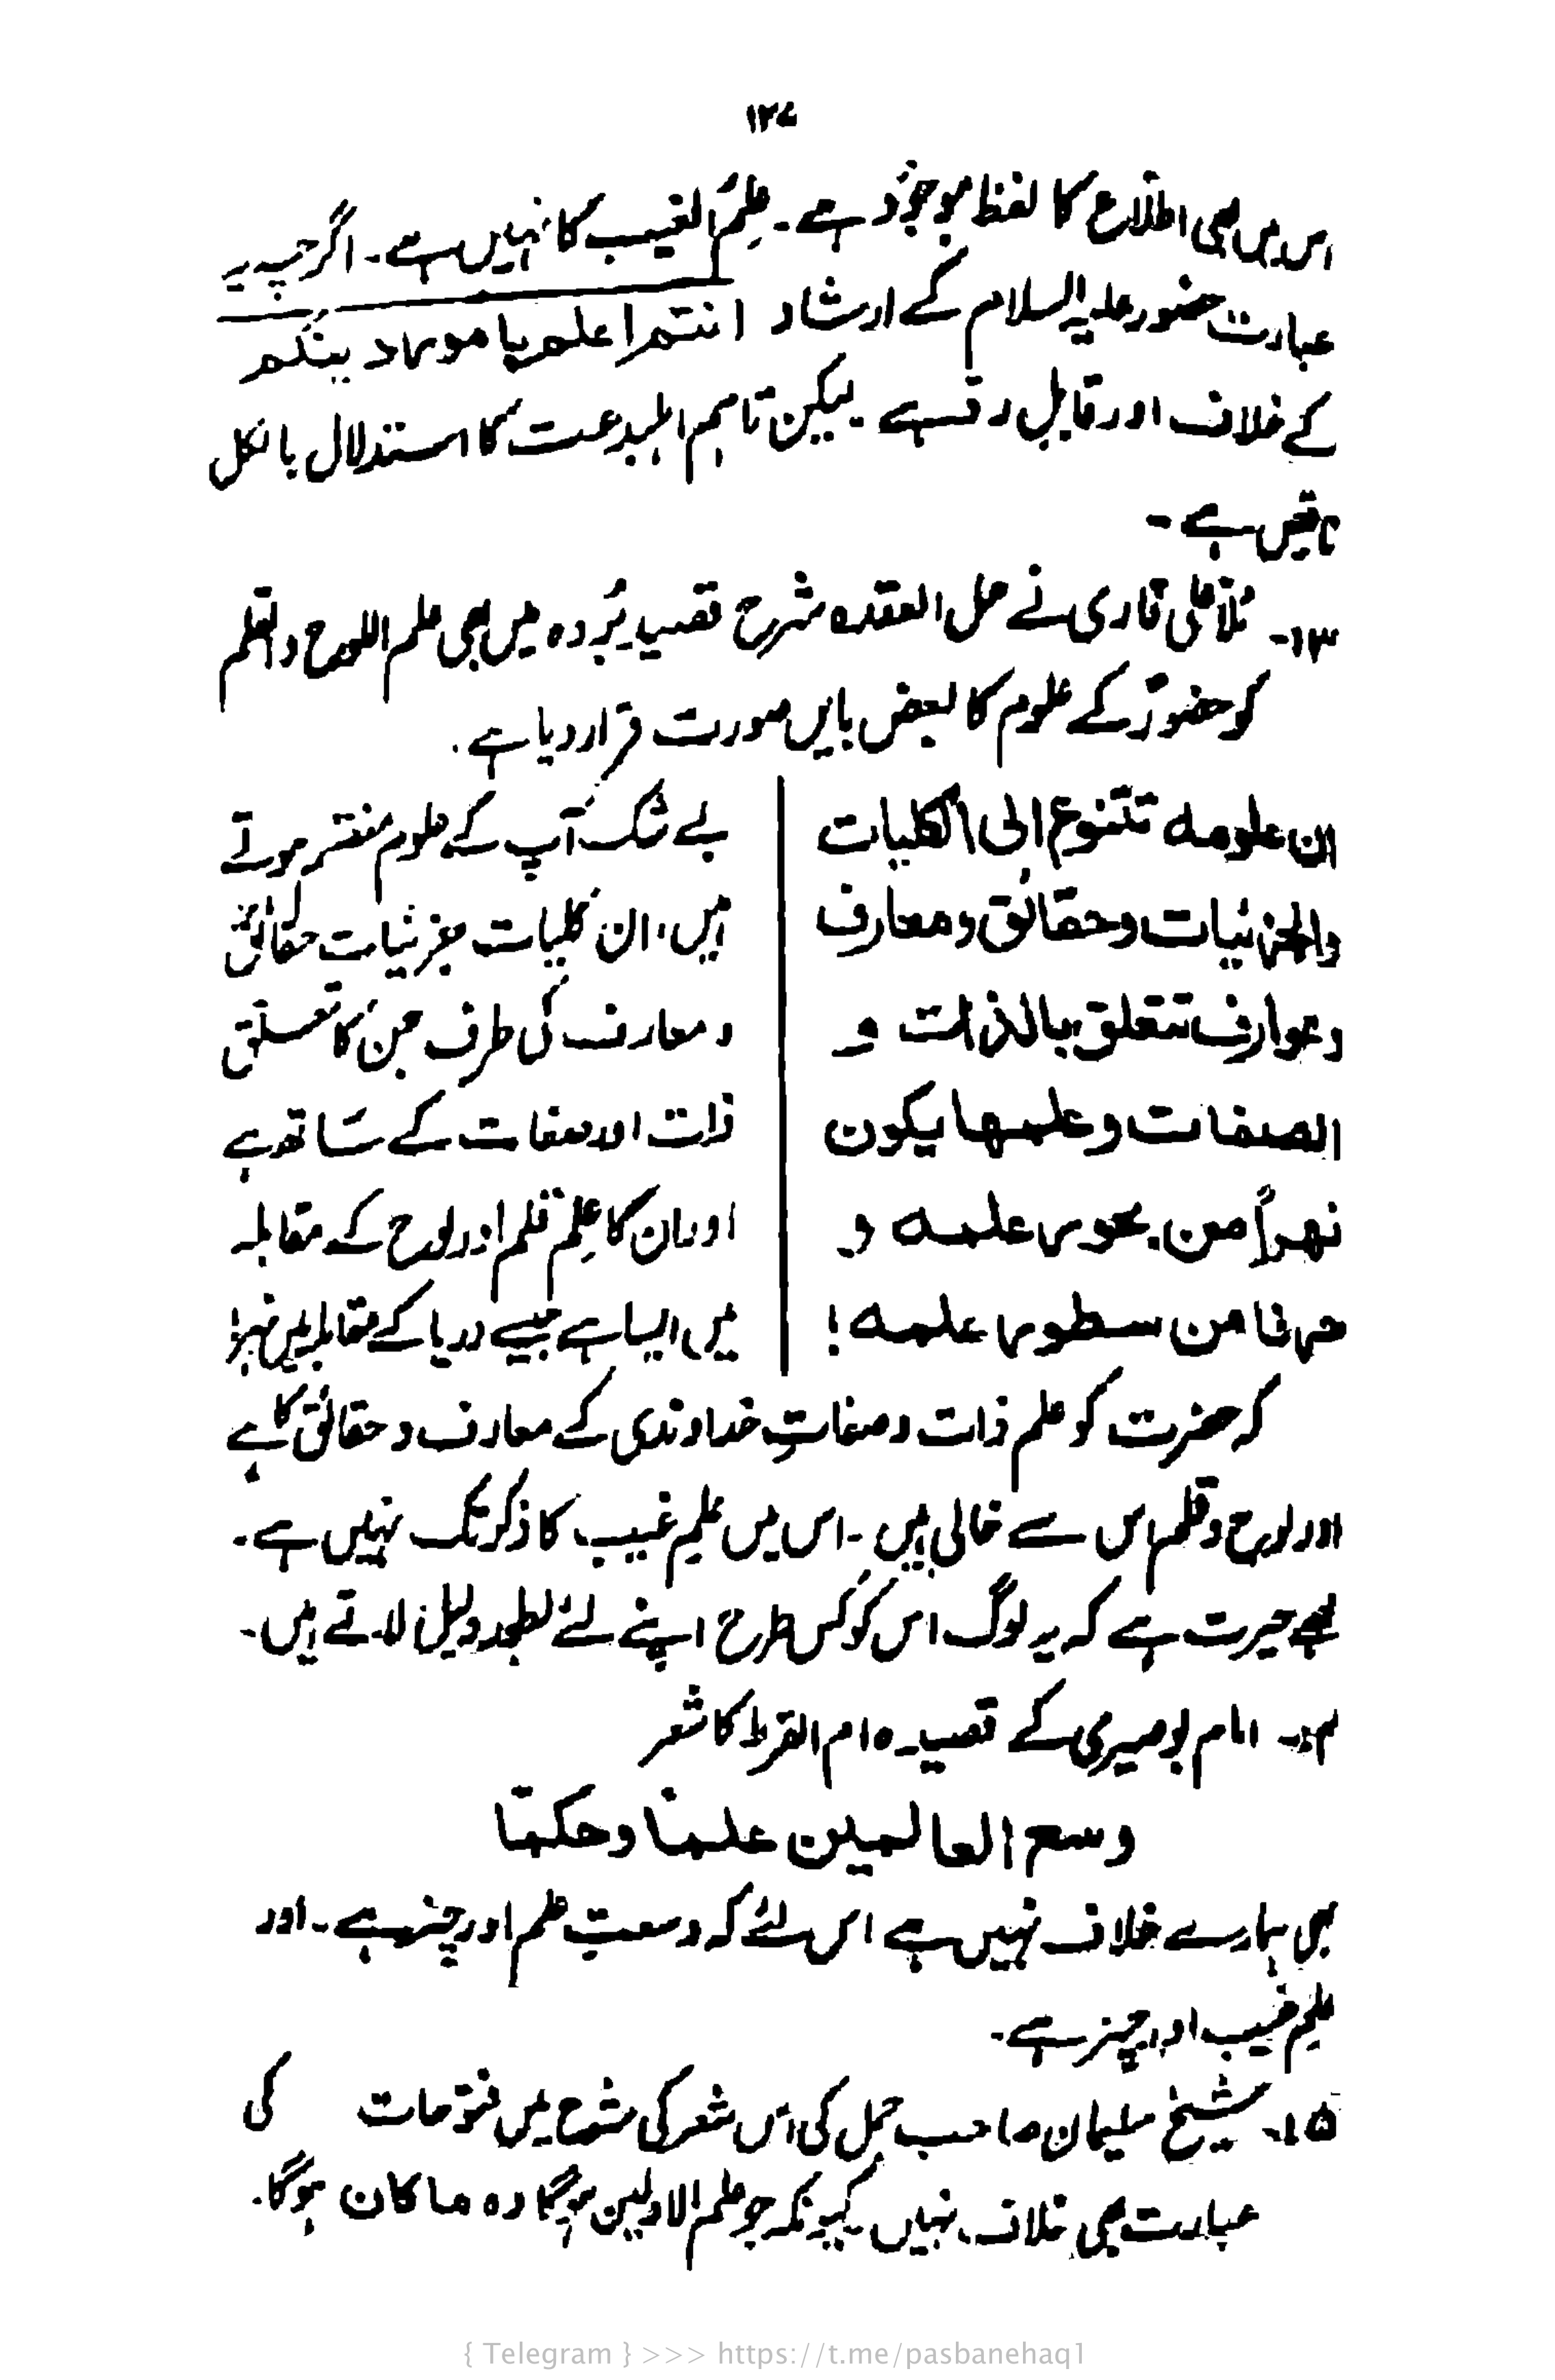 ۱۲۷
اس میں بھی اطلاع کا لفظ موجود ہے۔ عِلمُ الغیب کا نہیں ہے۔ اگرچہ یہ
عبارت حضور علیہ السلام کے ارشاد انتم اعلم بامور دینکم
کے خلاف اور قابلِ رد ہے۔ لیکن تاہم اہلِ بدعت کا استدلال بالکل
ناقص ہے۔
۱۳۔ مُلّا علی قاری نے حل العقدہ شرح قصیدہ بُردہ میں بھی علم اللوح والقلم
کو حضورؐ کے علوم کا بعض بایں صورت قرار دیا ہے۔
ان علومه تتنوع الی الکلیات
والجزئیات وحقائق ومعارف
وعوارف تتعلق بالذات و
الصفات وعلمها یکون
نهراً من بحور علمه و
حرفا من سطور علمه!
بے شک آپ کے علوم منتشر ہوتے
ہیں، ان کلیات جزئیات حقائق
و معارف کی طرف جن کا تعلق
ذات اور صفات کے ساتھ ہے
اور ان کا عِلم قلم اور لوح کے مقابلہ
میں ایسا ہے جیسے دریا کے مقابلہ میں نہر!
کہ حضرت کو علم ذات و صفاتِ خداوندی کے معارف و حقائق کا ہے
اور لوح و قلم اس سے خالی ہیں۔ اس میں علمِ غیب کا ذکر تک نہیں ہے۔
مجھے حیرت ہے کہ یہ لوگ اس کو کس طرح اپنے لئے بطور دلیل لاتے ہیں۔
۱۴۔ امام بوصیری کے قصیدہ ام القریٰ کا شعر
وسع العالمین علمًا وحکمًا
بھی ہمارے خلاف نہیں ہے اس لئے کہ وسعتِ علم اور چیز ہے۔ اور
علمِ غیب اور چیز ہے۔
۱۵۔ شیخ سلیمان صاحب جمل کی اس شعر کی شرح میں فتوحات کی
عبارت بھی خلاف نہیں کیونکہ جو علم الاولین ہوگا وہ ماکان ہوگا۔
{ Telegram } >>> https://t.me/pasbanehaq1